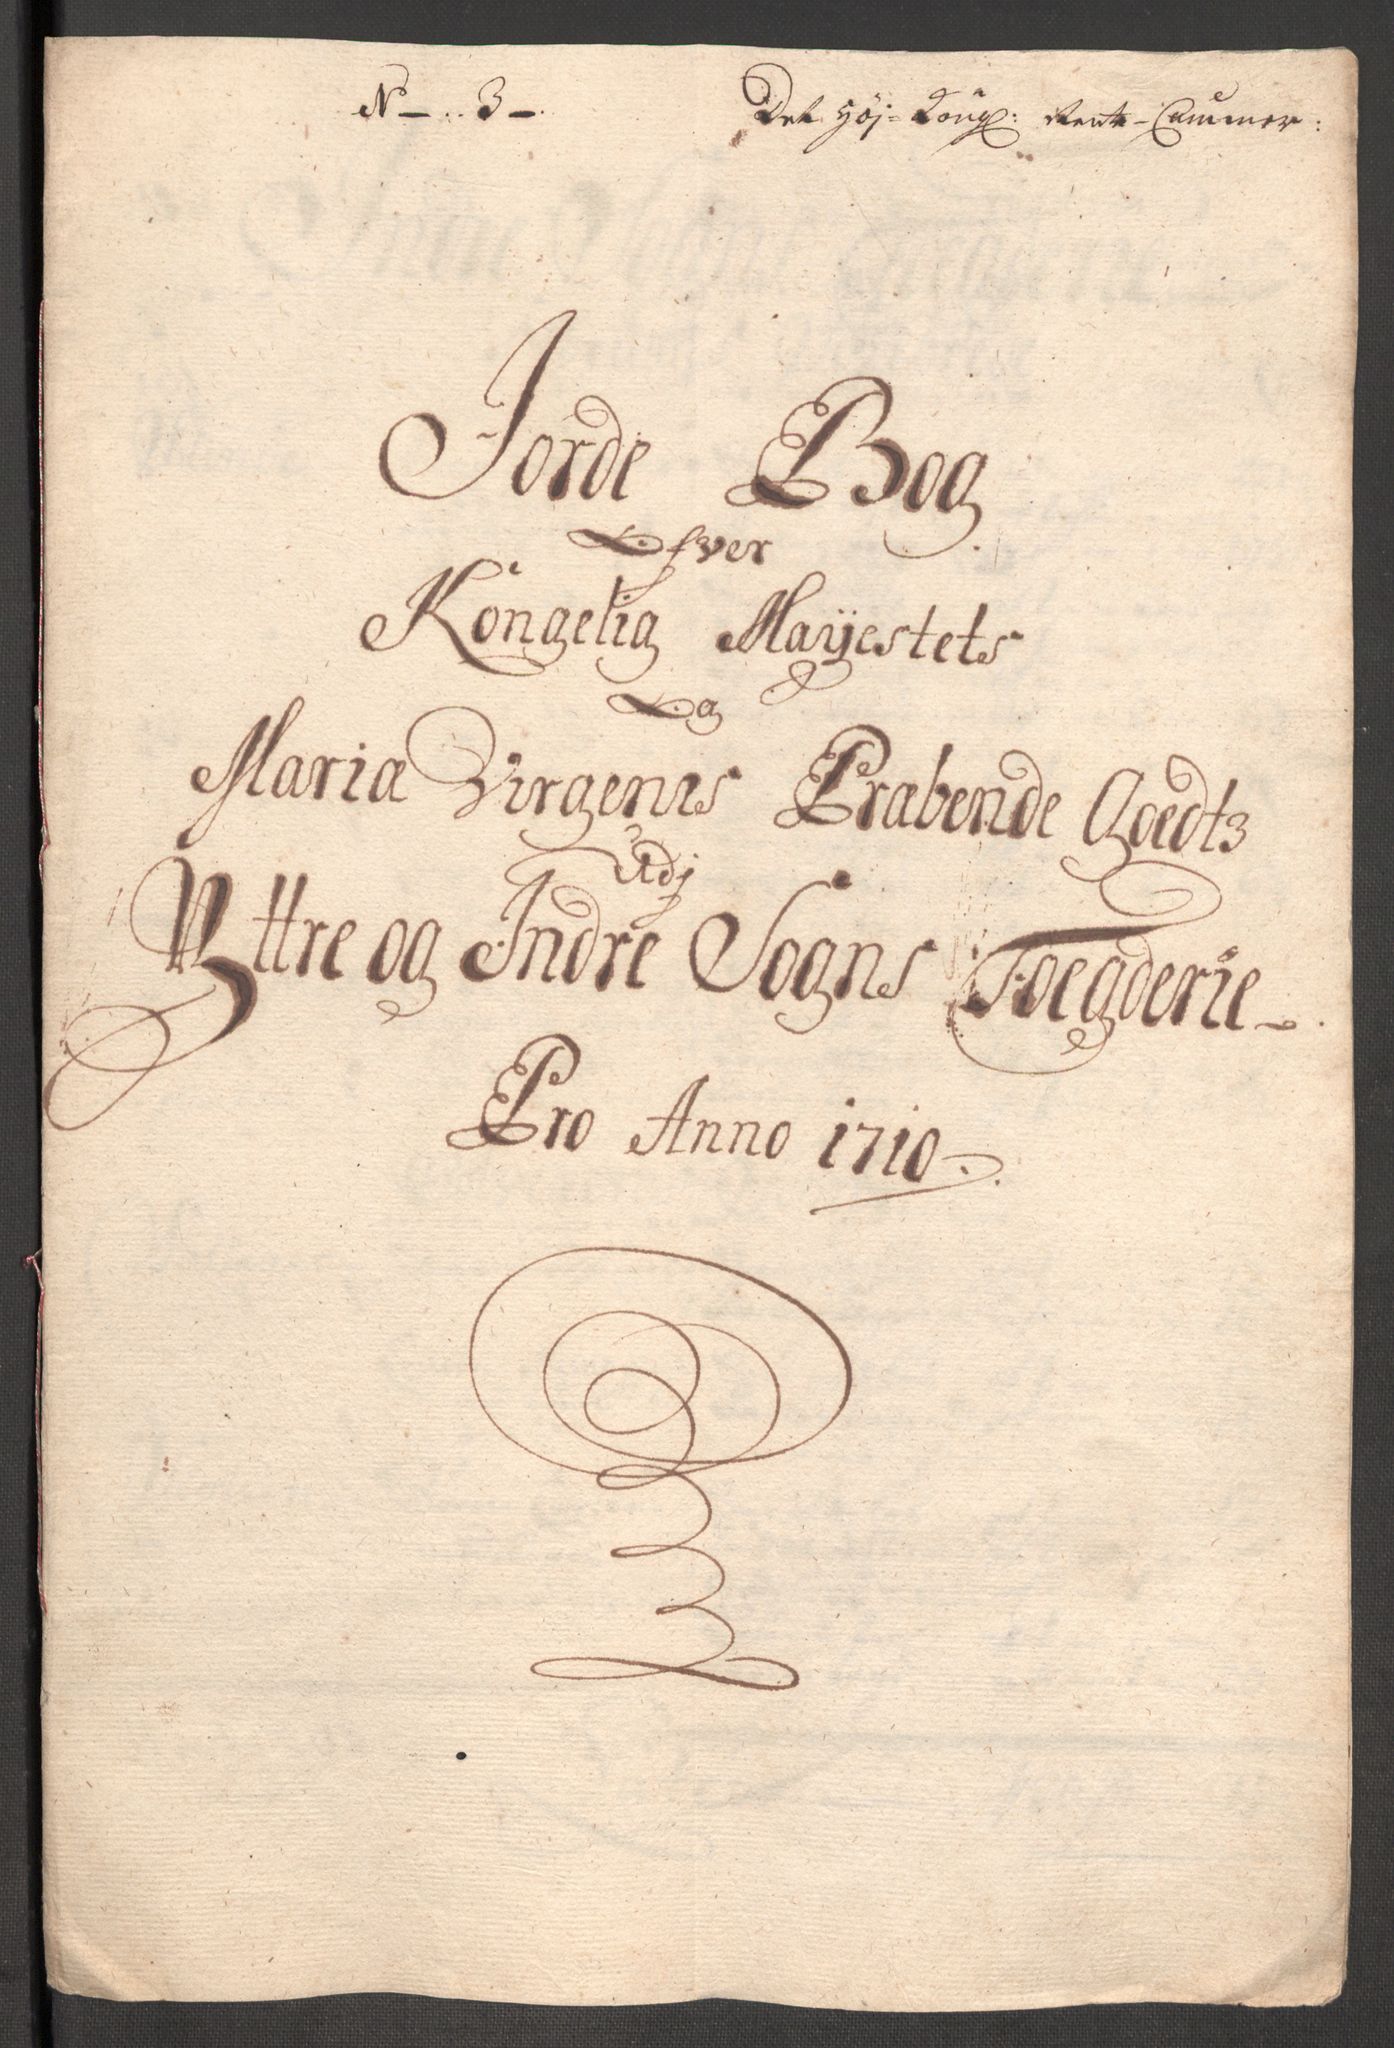 N – .. 3 –.
Det Høj- Kongl: Rente-Cammer:
Jorde Bog
Ofver
Kongelig Maÿestets
Og
Maria Virgenis Præbende Goedts
Udj
Ÿttre og Indre Sogns Foegderie
Pro Anno 1710